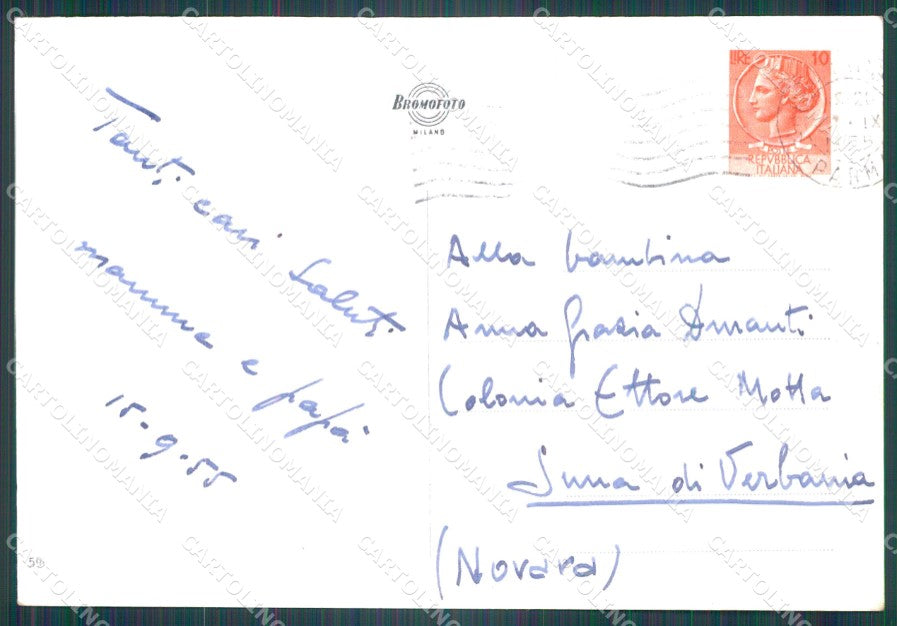 BROMOFOTO
MILANO
LIRE 10
POSTE
REPVBBLICA
ITALIANA
Tanti cari saluti
mamma e papà
15-9-55
Alla bambina
Anna Grazia
Colonia Ettore Motta
Suna di Verbania
(Novara)
59
CARTOLINOMANIA